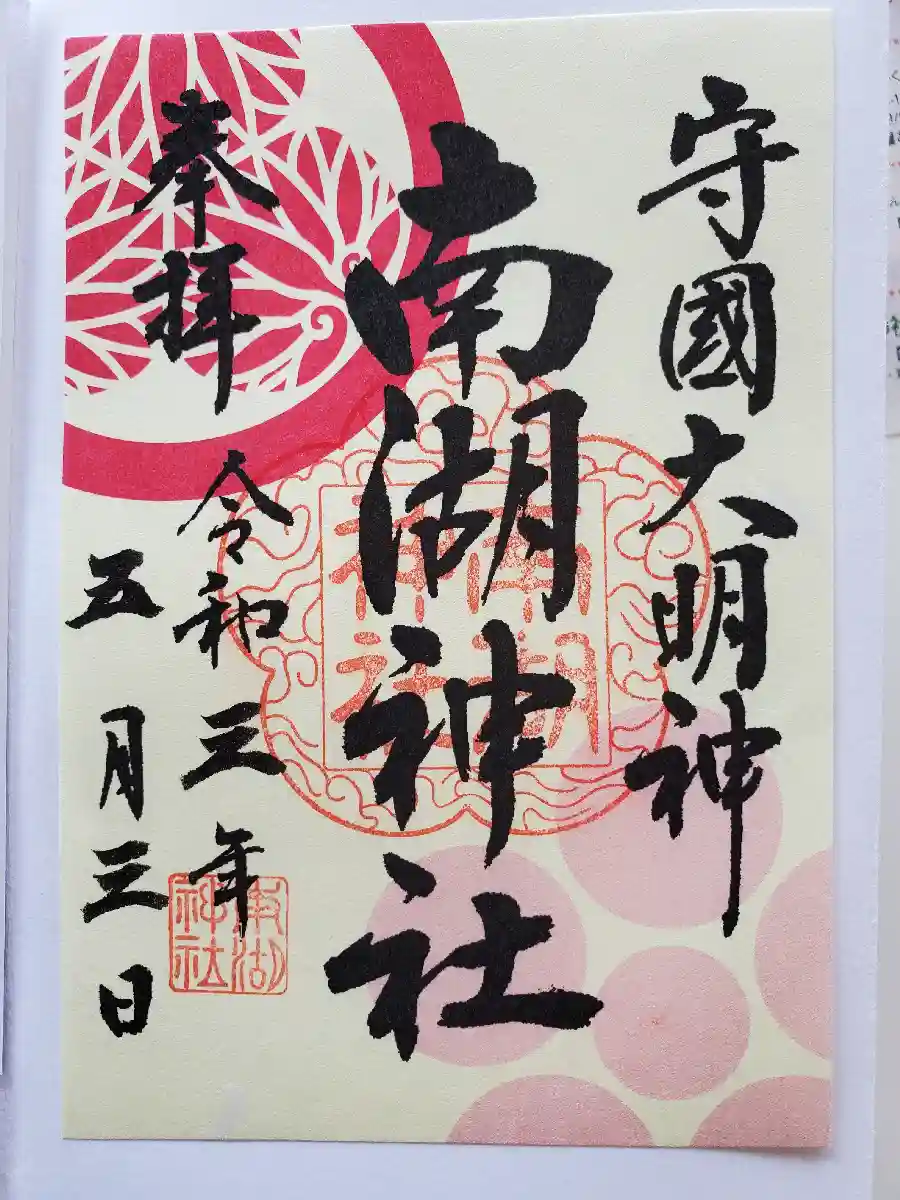 守國大明神
南湖神社
奉拝
令和三年
五月三日
南湖
神社
南湖
神社